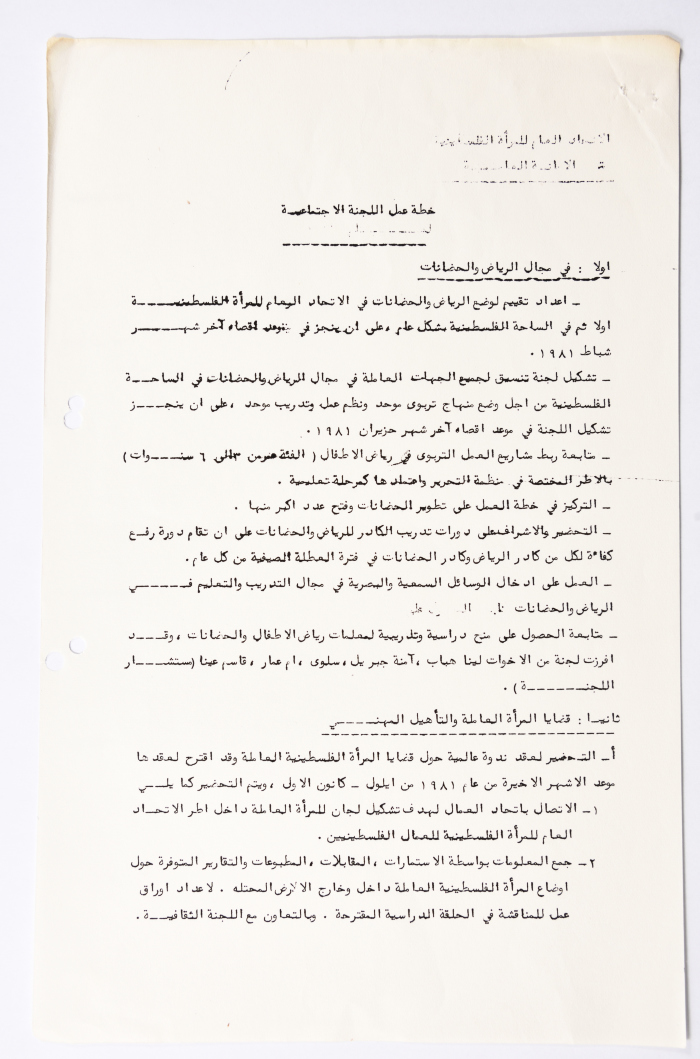 الاتحاد العام للمرأة الفلسطينية
الامانة العامـــة
خطة عمل اللجنة الاجتماعيـة
اولا : في مجال الرياض والحضانات
ـ اعداد تقييم لوضع الرياض والحضانات في الاتحاد العام للمرأة الفلسطينيـــــة
اولا ثم في الساحة الفلسطينية بشكل عام ،على ان ينجز في موعد اقصاه آخر شهــــر
شباط ١٩٨١ .
ـ تشكيل لجنة تنسيق لجميع الجهات العاملة في مجال الرياض والحضانات في الساحــة
الفلسطينية من اجل وضع منهاج تربوى موحد ونظم عمل وتدريب موحد ،على ان ينجـــز
تشكيل اللجنة في موعد اقصاه آخر شهر حزيران ١٩٨١ .
ـ متابعة ربط مشاريع العمل التربوى في رياض الاطفال ( الفئة من ٣ الى ٦ سنــوات)
بالاطر المختصة في منظمة التحرير واعتمادها كمرحلة تعليمية .
ـ التركيز في خطة العمل على تطوير الحضانات وفتح عدد اكبر منها .
ـ التحضير والاشراف على دورات تدريب الكادر للرياض والحضانات على ان تقام دورة رفـع
كفاءة لكل من كادر الرياض وكادر الحضانات في فترة العطلة الصيفية من كل عام.
ـ العمل على ادخال الوسائل السمعية والبصرية في مجال التدريب والتعليم فـــــي
الرياض والحضانات
ـ متابعة الحصول على منح دراسية وتدريبية لمعلمات رياض الاطفال والحضانات ،وقـــد
افرزت لجنة من الاخوات لينا هباب ،آمنة جبريل، سلوى ،ام عمار ، قاسم عينا (مستشــار
اللجنــــــة) .
ثانيا : قضايا المرأة العاملة والتأهيل المهنــــي
أـ التحضير لعقد ندوة عالمية حول قضايا المرأة الفلسطينية العاملة وقد اقترح لعقدها
موعد الاشهر الاخيرة من عام ١٩٨١ من ايلول ـ كانون الاول ، ويتم التحضير كما يلــي
١ـ الاتصال باتحاد العمال لهدف تشكيل لجان للمرأة العاملة داخل اطر الاتحــاد
العام للمرأة الفلسطينية للعمال الفلسطينيين .
٢ـ جمع المعلومات بواسطة الاستمارات ،المقابلات ،المطبوعات والتقارير المتوفرة حول
اوضاع المرأة الفلسطينية العاملة داخل وخارج الارض المحتله . لاعداد اوراق
عمل للمناقشة في الحلقة الدراسية المقترحة . وبالتعاون مع اللجنة الثقافيـــة .